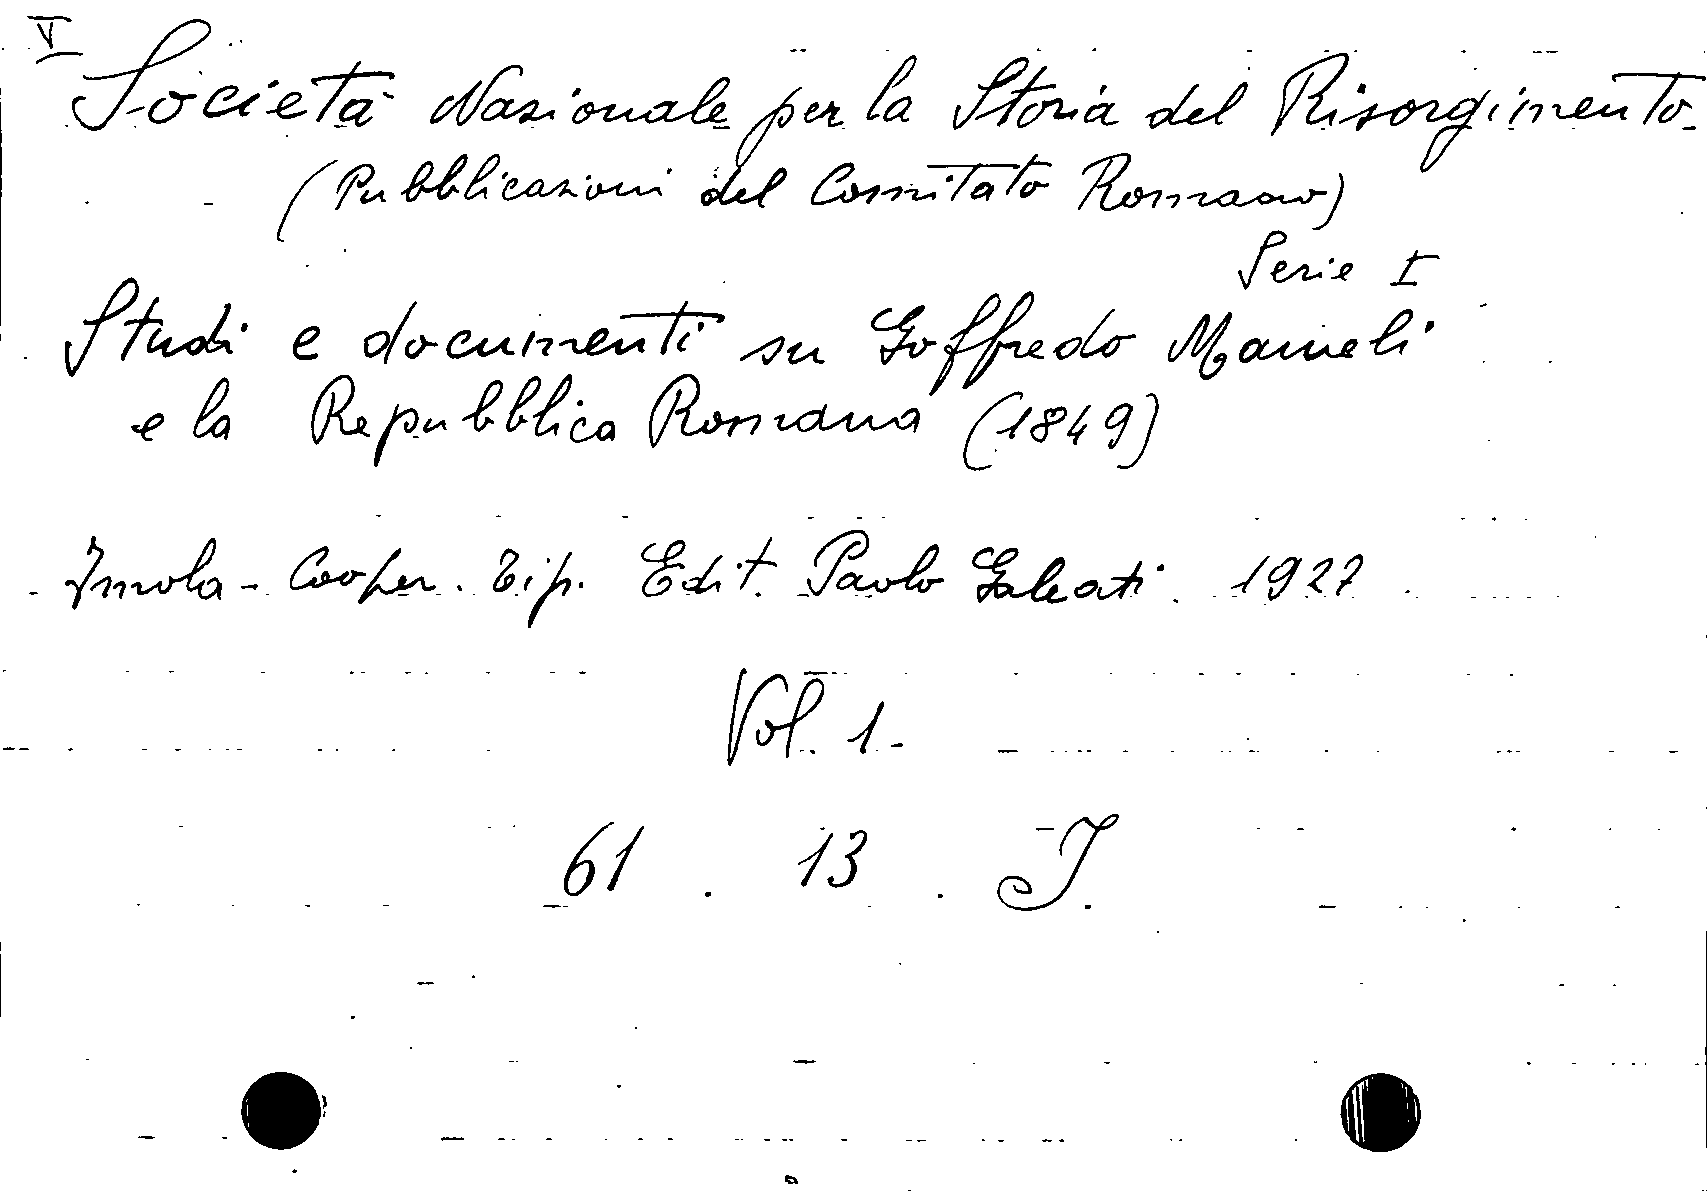 V
Società Nazionale per la Storia del Risorgimento.
(Pubblicazioni del Comitato Romano)
Serie I
Studi e documenti su Goffredo Mameli
e la Repubblica Romana (1849)
Imola - Cooper. Tip. Edit. Paolo Galeati. 1927
Vol. 1.
61 . 13 . I.